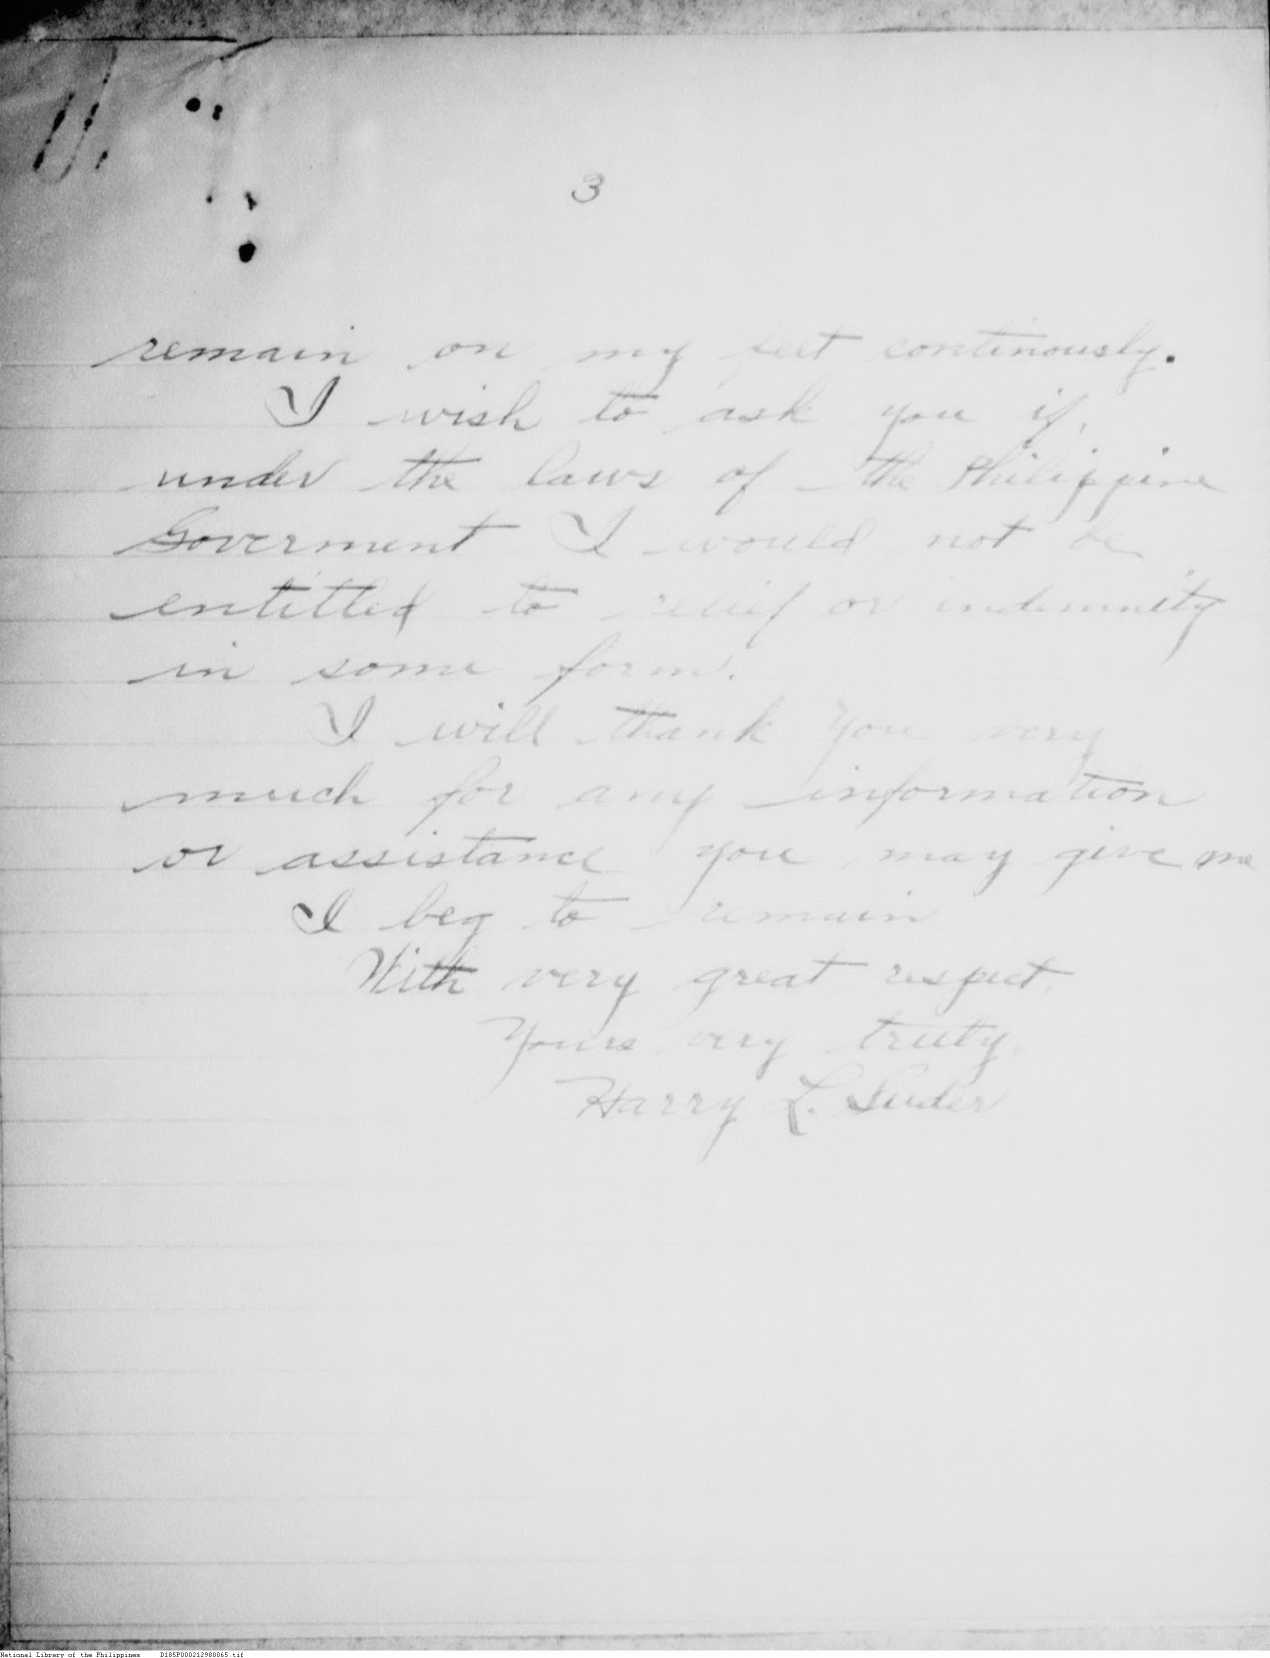 3
remain on my feet continously.
I wish to ask you if,
under the laws of the Philippine
Goverment I would not be
entitled to relief or indemnity
in some form.
I will thank you very
much for any information
or assistance you may give me
I beg to remain
With very great respect.
Yours very truly.
Harry L.
National Library of the Philippines D185P000212980065.tif